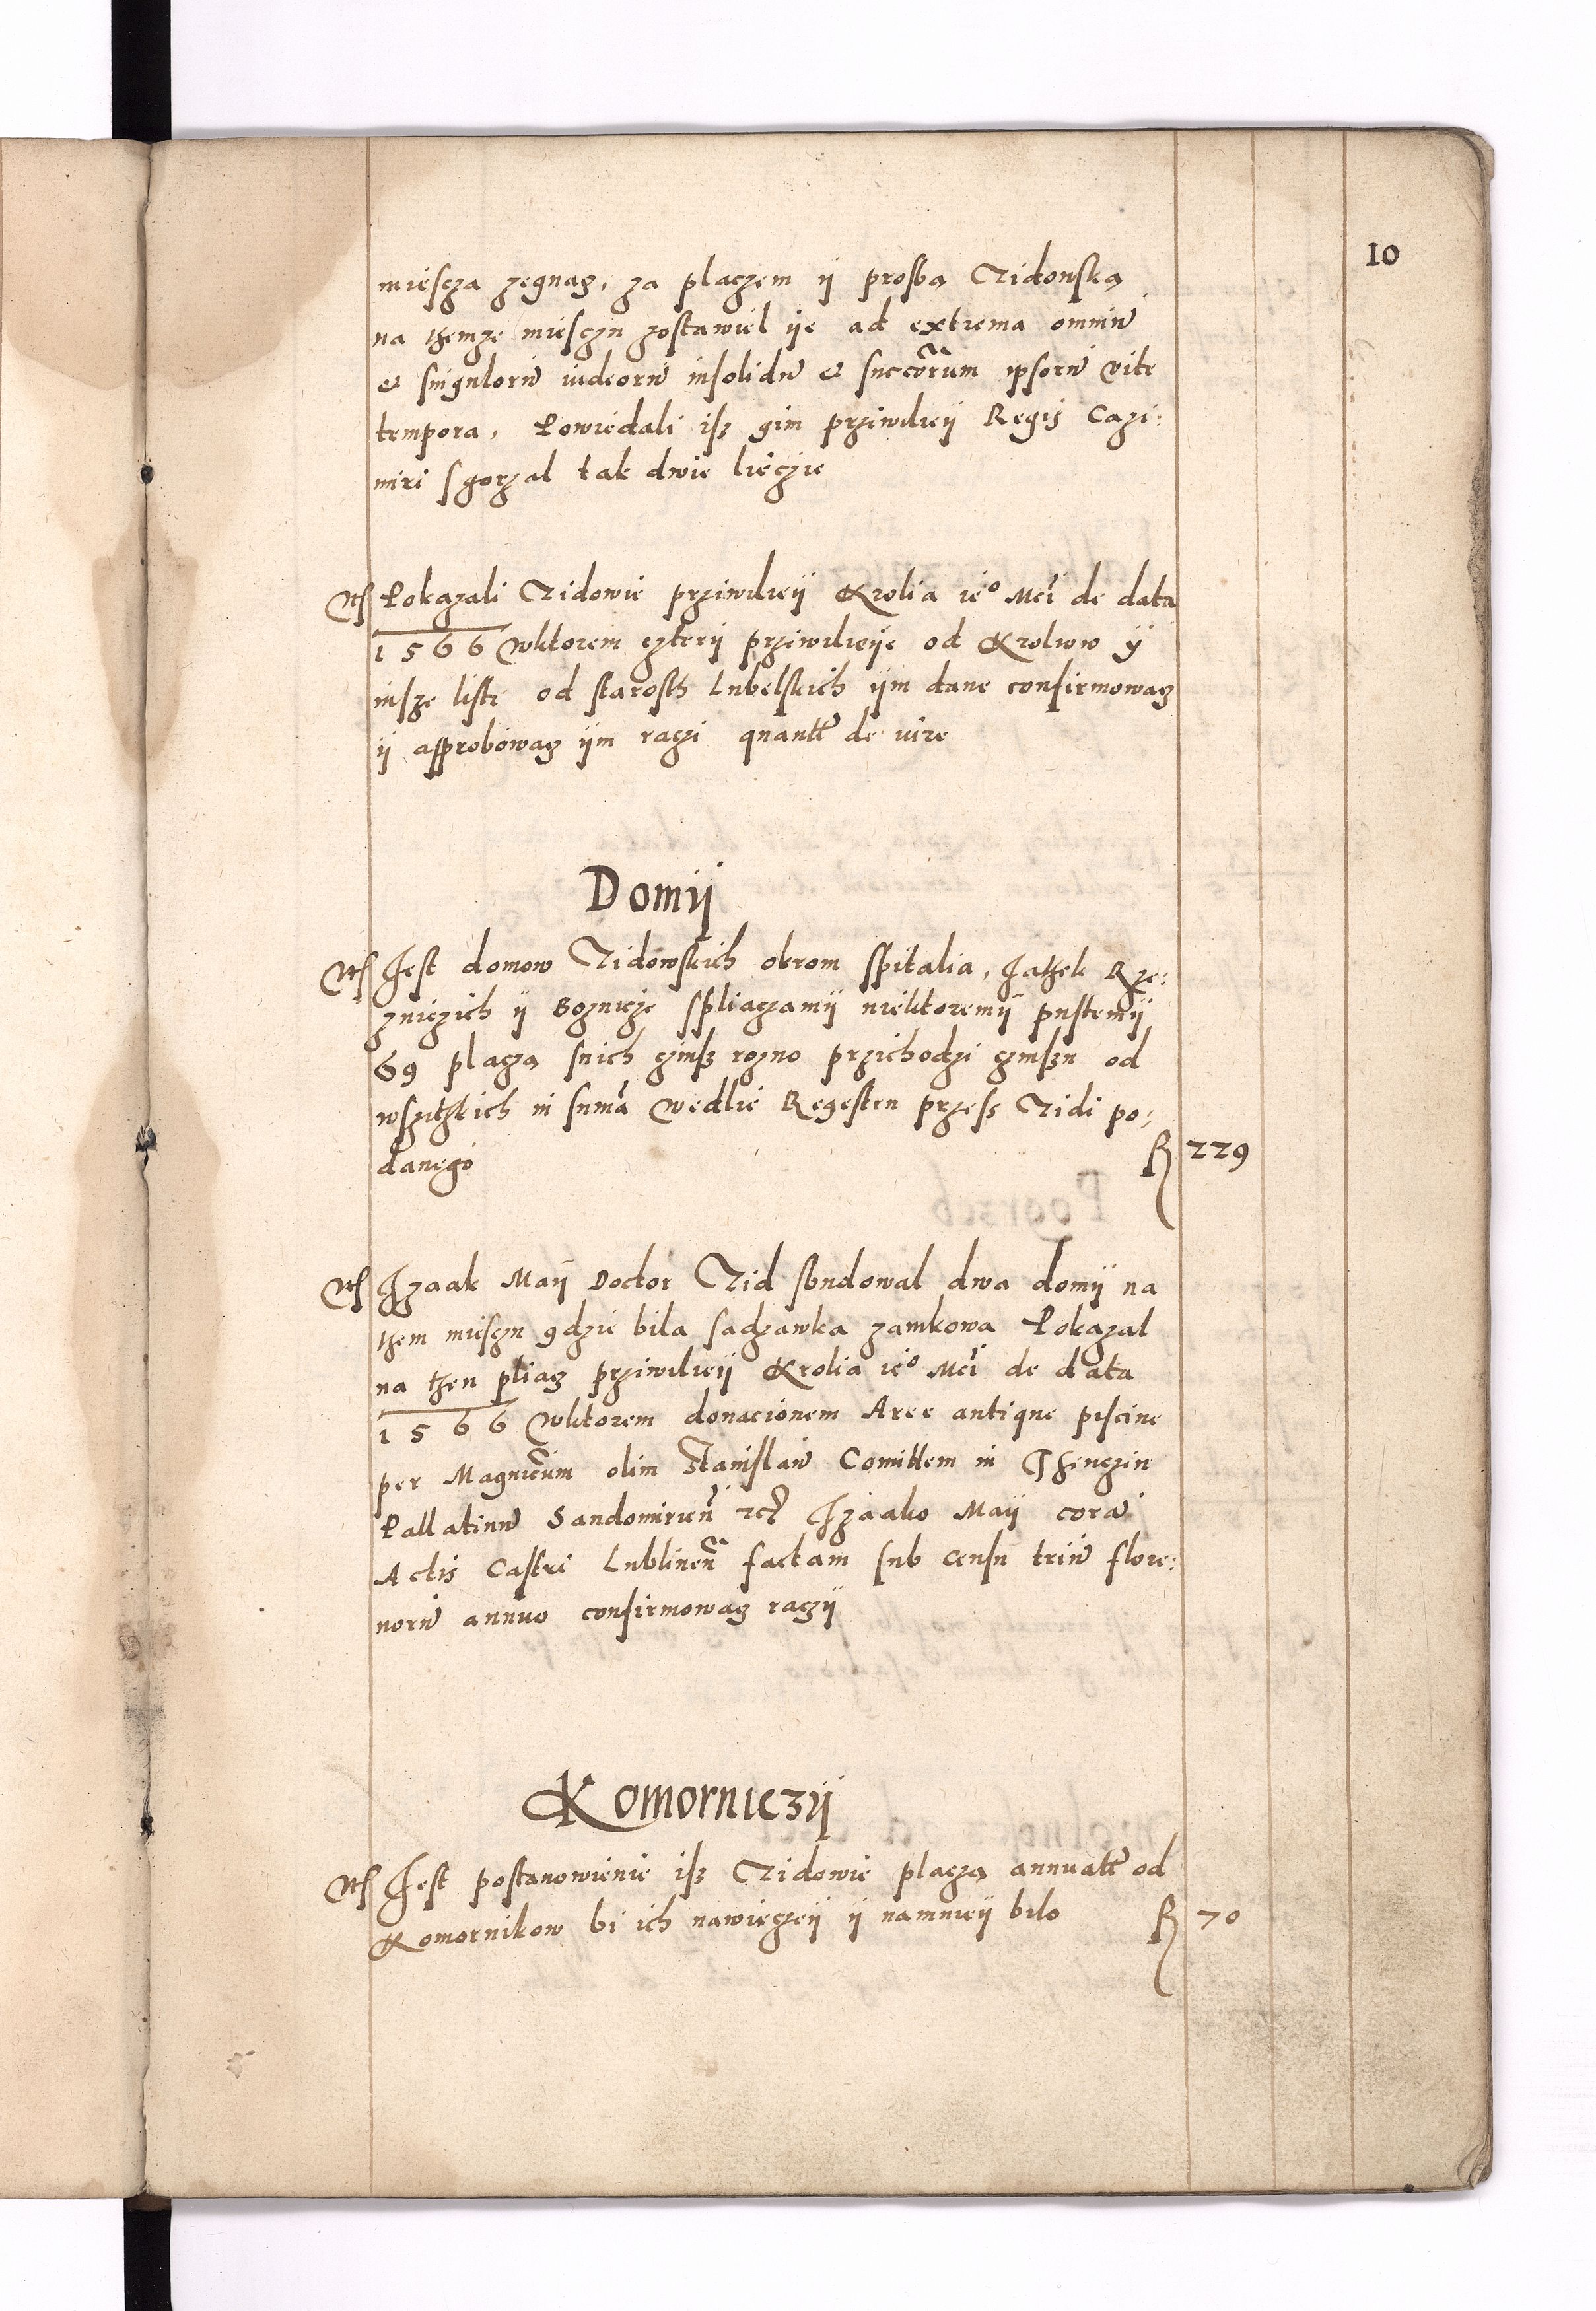 10
miescza zegnacz, za placzem ÿ prosbą Zidowską
na themze miesczu zostawiel ÿe ad extrema omniū
et singulorū iudeorū insolidū et succōrum ipsorū vite
tempora, Powiedali isz gim prziwileÿ Regis Cazi:
miri sgorzal tak dwie lieczie
Itē Pokazali Zidowie prziwileÿ Krolia ieº Mci de data
1566 wktorem czterÿ prziwileiÿe od Krolwow ÿ
insze liste od starosth Lubelskich ÿm dane confirmowacz
ÿ approbowacz ÿm raczi quantū de iure
Domÿ
Itē Jest domow Zidowskich okrom spitalia, Jathek Rze:
zniczich ÿ Boznicze spliaczamÿ niektoremÿ pustemÿ
69 placzą snich czinsz rozno przichodzi czinszu od
wszithkich in sumā wedlie Regestru przess Zidi po,
danego fl 229
Itē Jzaak Maÿ Doctor Zid sbudowal dwa domÿ na
them miesczu gdzie bila sadzawka zamkowa Pokazal
na then pliacz prziwileÿ Krolia ieº Mci de data
1566 wktorem donacionem Aree antique piscine
per Magnicūm olim Stanislaū Comittem in Thenczin
Pallatinū Sandomirien̄ etc̄ Jzaako Maÿ corā
Actis Castri Lublinen̄ factam sub censu triū flore:
norū annuo confirmowacz raczÿ
Komorniczÿ
Itē Jest postanowienie isz Zidowie placzą annuatī od
Komornikow bi ich nawieczeÿ ÿ namnieÿ bilo fl 70